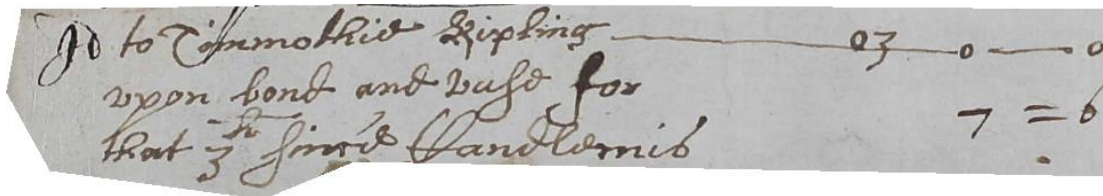 Id to Timmothie Kipling 03 0 0
vpon bond and vuse for
that 3 li since Candlemis 7 = 6